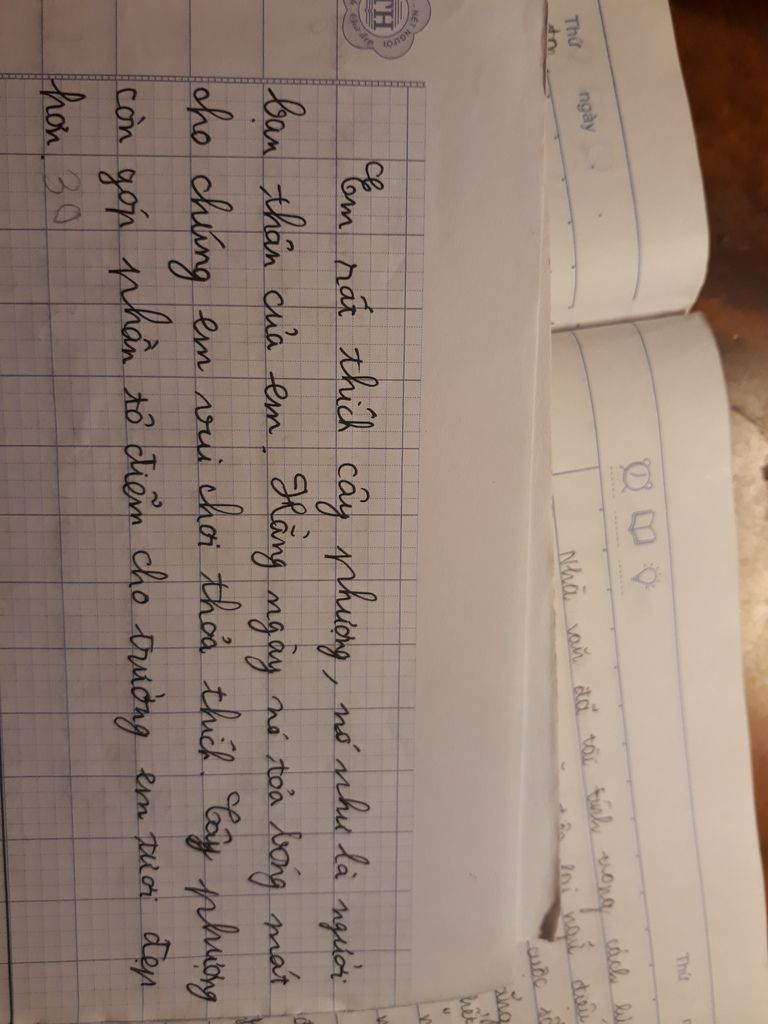 NÉT NGƯỜI
TH
Em rất thích cây phượng, nó như là người
bạn thân của em. Hằng ngày nó tỏa bóng mát
cho chúng em vui chơi thỏa thích. Cây phượng
còn góp phần tô điểm cho trường em tươi đẹp
hơn. 30
Thứ ngày
Thứ
Nhà văn đã rất tinh trong cách